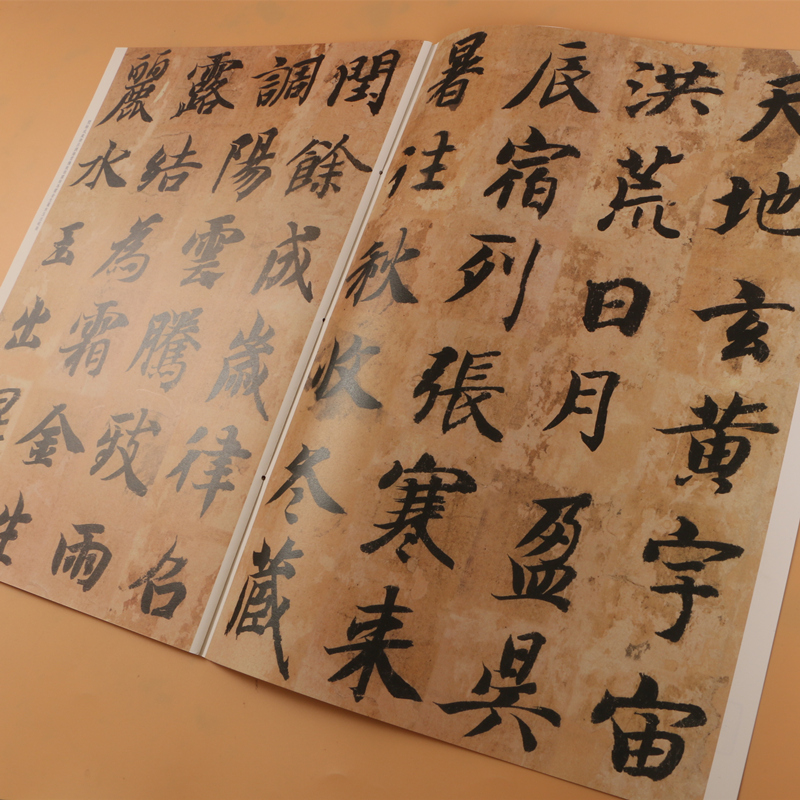 天地玄黄宇宙
洪荒日月盈昃
辰宿列張寒来
暑往秋收冬蔵
閏餘成歲律召
調陽雲騰致雨
露結為霜金生
麗水玉出